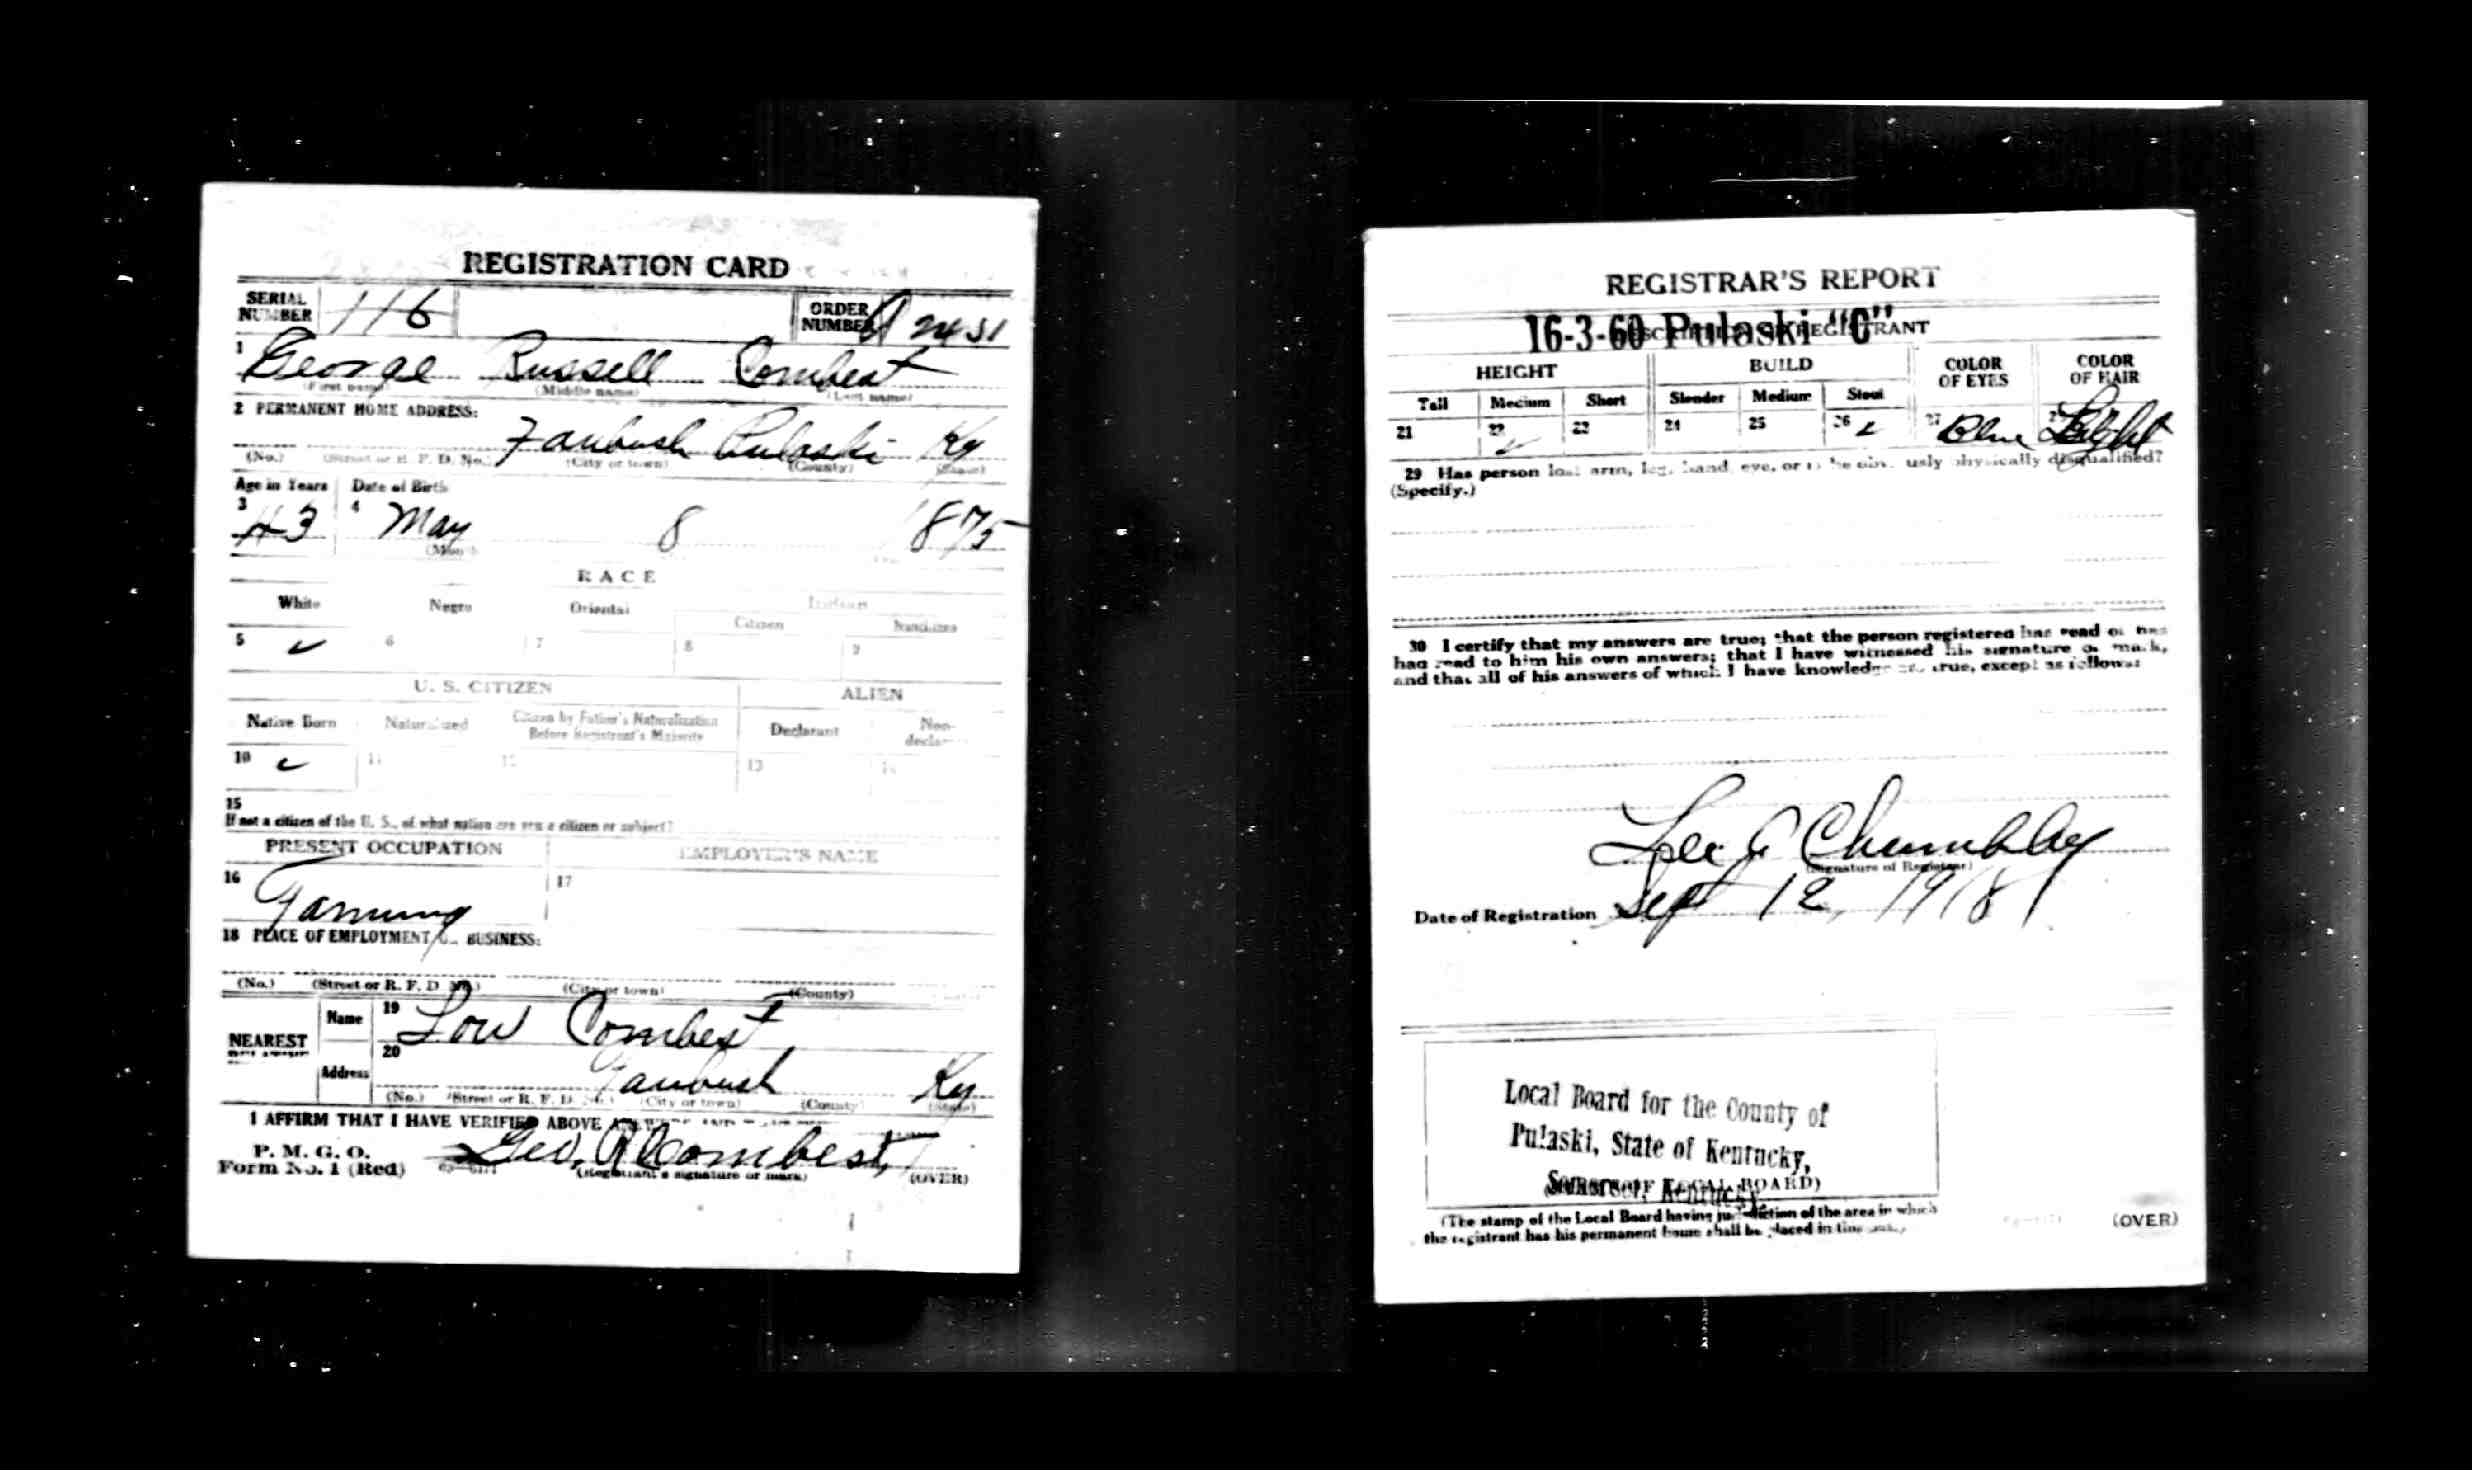 REGISTRATION CARD
SERIAL NUMBER 116 ORDER NUMBER A 2431
1 George Russell Combest
(First name) (Middle name) (Last name)
2 PERMANENT HOME ADDRESS:
Faubush Pulaski Ky
(No.) (Street or R. F. D. No.) (City or town) (County) (State)
Age in Years Date of Birth
3 43 4 May 8 1875
(Month)
RACE
White Negro Oriental Indian
Citizen Noncitizen
5 ✓ 6 7 8 9
U. S. CITIZEN ALIEN
Native Born Naturalized Citizen by Father's Naturalization Before Registrant's Majority Declarant Non-declarant
10 ✓ 11 12 13 14
15
If not a citizen of the U. S., of what nation are you a citizen or subject?
PRESENT OCCUPATION EMPLOYER'S NAME
16 Farming 17
18 PLACE OF EMPLOYMENT OR BUSINESS:
(No.) (Street or R. F. D. No.) (City or town) (County)
NEAREST RELATIVE
Name 19 Low Combest
Address 20 Faubush Ky
(No.) (Street or R. F. D. No.) (City or town) (County) (State)
I AFFIRM THAT I HAVE VERIFIED ABOVE
P. M. G. O.
Form No. 1 (Red) Geo. R Combest
(Registrant's signature or mark) (OVER)
REGISTRAR'S REPORT
16-3-60 Pulaski "C"
DESCRIPTION OF REGISTRANT
HEIGHT BUILD COLOR OF EYES COLOR OF HAIR
Tall Medium Short Slender Medium Stout
21 22 ✓ 23 24 25 26 ✓ 27 Blue Light
29 Has person lost arm, leg, hand, eye, or is he obviously physically disqualified?
(Specify.)
30 I certify that my answers are true; that the person registered has read or has
had read to him his own answers; that I have witnessed his signature or mark,
and that all of his answers of which I have knowledge are true, except as follows:
Lee A Chumbley
(Signature of Registrar)
Date of Registration Sept 12, 1918
Local Board for the County of
Pulaski, State of Kentucky,
Somerset, Kentucky.
(STAMP OF LOCAL BOARD)
(The stamp of the Local Board having jurisdiction of the area in which
the registrant has his permanent home shall be placed in this box.)
(OVER)